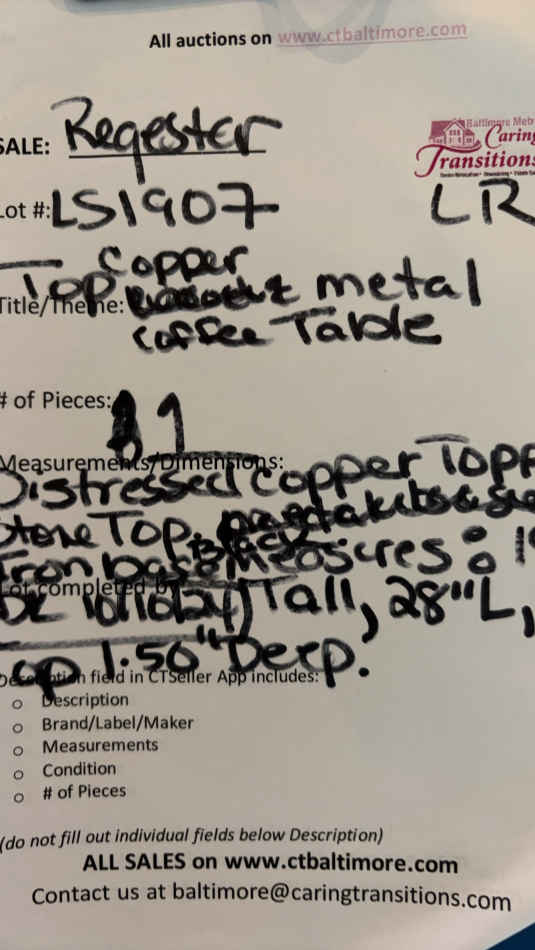 All auctions on www.ctbaltimore.com
SALE: Regester
Baltimore Met
Caring
Transitions
Lot #: LS1907 LR
Copper
Top metal
Title/Theme:
coffee Table
# of Pieces: 1
Measurements/Dimensions:
Distressed Copper Topp
stone Top. Black
Iron base measures : 1
Lot completed by
Tall, 28" L,
1.50" Deep.
Description field in CTSeller App includes:
o Description
o Brand/Label/Maker
o Measurements
o Condition
o # of Pieces
(do not fill out individual fields below Description)
ALL SALES on www.ctbaltimore.com
Contact us at baltimore@caringtransitions.com